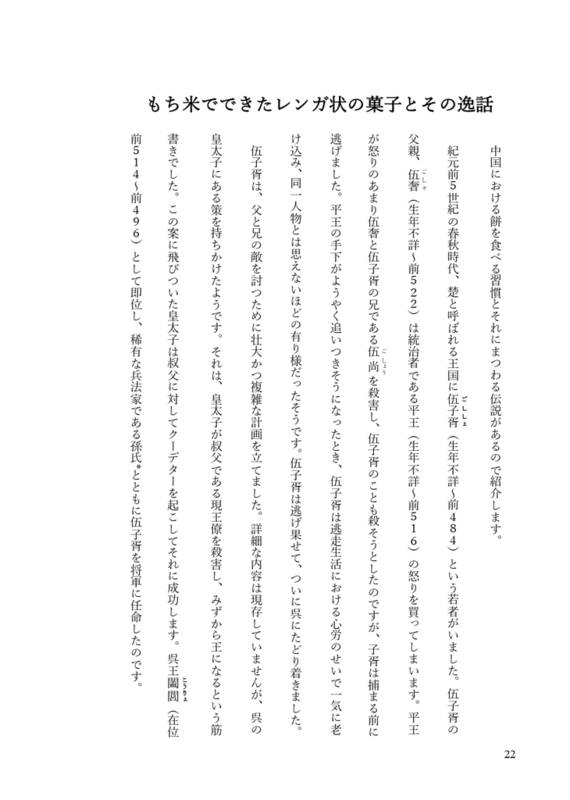 もち米でできたレンガ状の菓子とその逸話
中国における餅を食べる習慣とそれにまつわる伝説があるので紹介します。
紀元前5世紀の春秋時代、楚と呼ばれる王国に伍子胥（生年不詳〜前484）という若者がいました。伍子胥の
ごししょ
父親、伍奢（生年不詳〜前522）は統治者である平王（生年不詳〜前516）の怒りを買ってしまいます。平王
ごしゃ
が怒りのあまり伍奢と伍子胥の兄である伍尚を殺害し、伍子胥のことも殺そうとしたのですが、子胥は捕まる前に
ごしょう
逃げました。平王の手下がようやく追いつきそうになったとき、伍子胥は逃走生活における心労のせいで一気に老
け込み、同一人物とは思えないほどの有り様だったそうです。伍子胥は逃げ果せて、ついに呉にたどり着きました。
伍子胥は、父と兄の敵を討つために壮大かつ複雑な計画を立てました。詳細な内容は現存していませんが、呉の
皇太子にある策を持ちかけたようです。それは、皇太子が叔父である現王僚を殺害し、みずから王になるという筋
書きでした。この案に飛びついた皇太子は叔父に対してクーデターを起こしてそれに成功します。呉王闔閭（在位
こうりょ
前514〜前496）として即位し、稀有な兵法家である孫氏*とともに伍子胥を将軍に任命したのです。
22